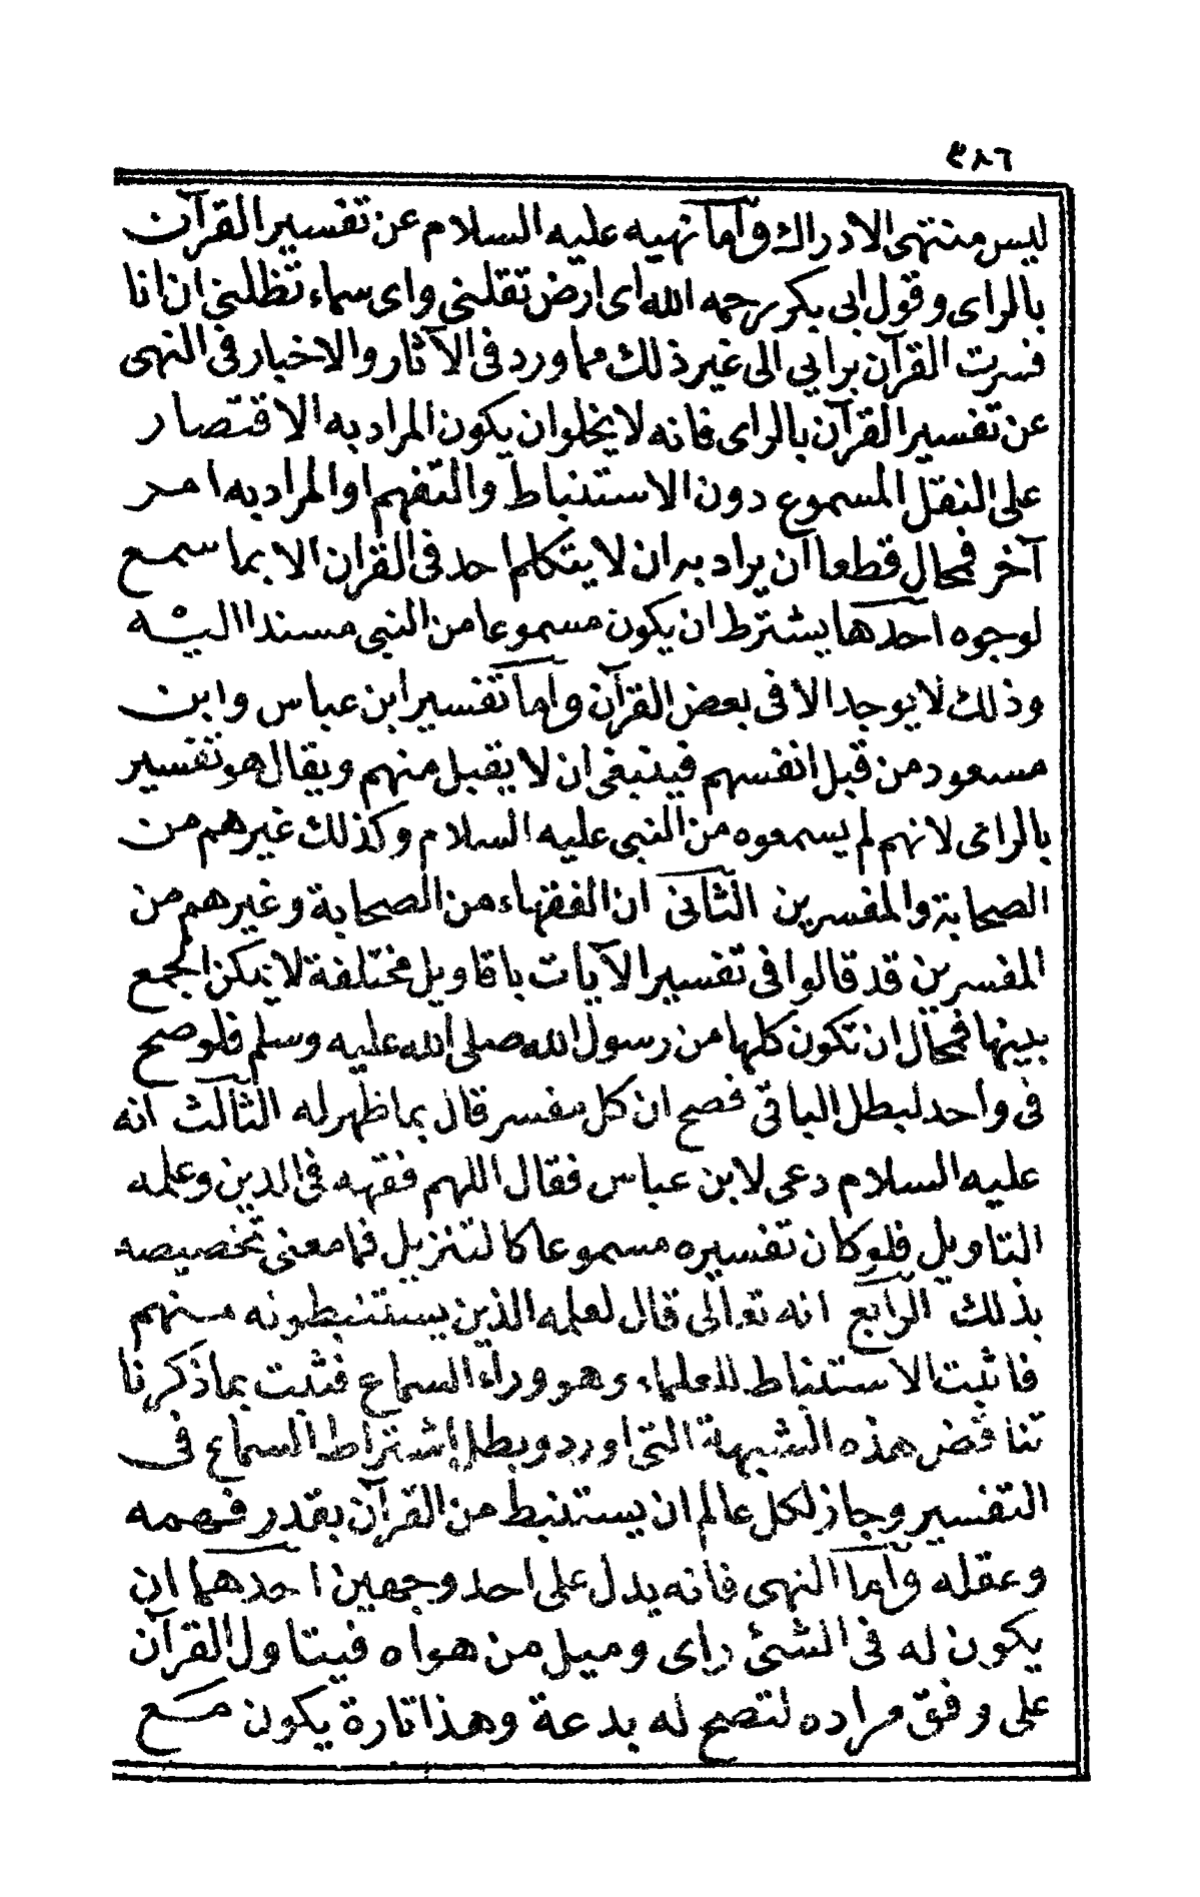 ٣٨٦
ليس منتهى الادراك واما نهيه عليه السلام عن تفسير القرآن
بالراى وقول ابى بكر رحمه الله اى ارض تقلنى واى سماء تظلنى ان انا
فسرت القرآن برايي الى غير ذلك مما ورد فى الآثار والاخبار فى النهى
عن تفسير القرآن بالراى فانه لا يخلو ان يكون المراد به الاقتصار
على النقل المسموع دون الاستنباط والتفهم او المراد به امر
آخر فمحال قطعا ان يراد به ان لا يتكلم احد فى القران الا بما سمع
لوجوه احدها يشترط ان يكون مسموعا من النبى مسندا اليه
وذلك لا يوجد الا فى بعض القرآن واما تفسير ابن عباس وابن
مسعود من قبل انفسهم فينبغى ان لا يقبل منهم ويقال هو تفسير
بالراى لانهم لم يسمعوه من النبى عليه السلام وكذلك غيرهم من
الصحابة والمفسرين الثانى ان الفقهاء من الصحابة وغيرهم من
المفسرين قد قالوا فى تفسير الآيات باقاويل مختلفة لا يمكن الجمع
بينها فمحال ان تكون كلها من رسول الله صلى الله عليه وسلم فلو صح
فى واحد لبطل الباقى فصح ان كل مفسر قال بما ظهر له الثالث انه
عليه السلام دعى لابن عباس فقال اللهم فقهه فى الدين وعلمه
التاويل فلو كان تفسيره مسموعا كالتنزيل فما معنى تخصيصه
بذلك الرابع انه تعالى قال لعلمه الذين يستنبطونه منهم
فاثبت الاستنباط للعلماء وهو وراء السماع فثبت بما ذكرنا
تناقض هذه الشبهة التى اورد وبطل اشتراط السماع فى
التفسير وجاز لكل عالم ان يستنبط من القرآن بقدر فهمه
وعقله واما النهى فانه يدل على احد وجهين احدهما ان
يكون له فى الشئ راى وميل من هواه فيتاول القرآن
على وفق مراده لتصح له بدعة وهذا تارة يكون مع